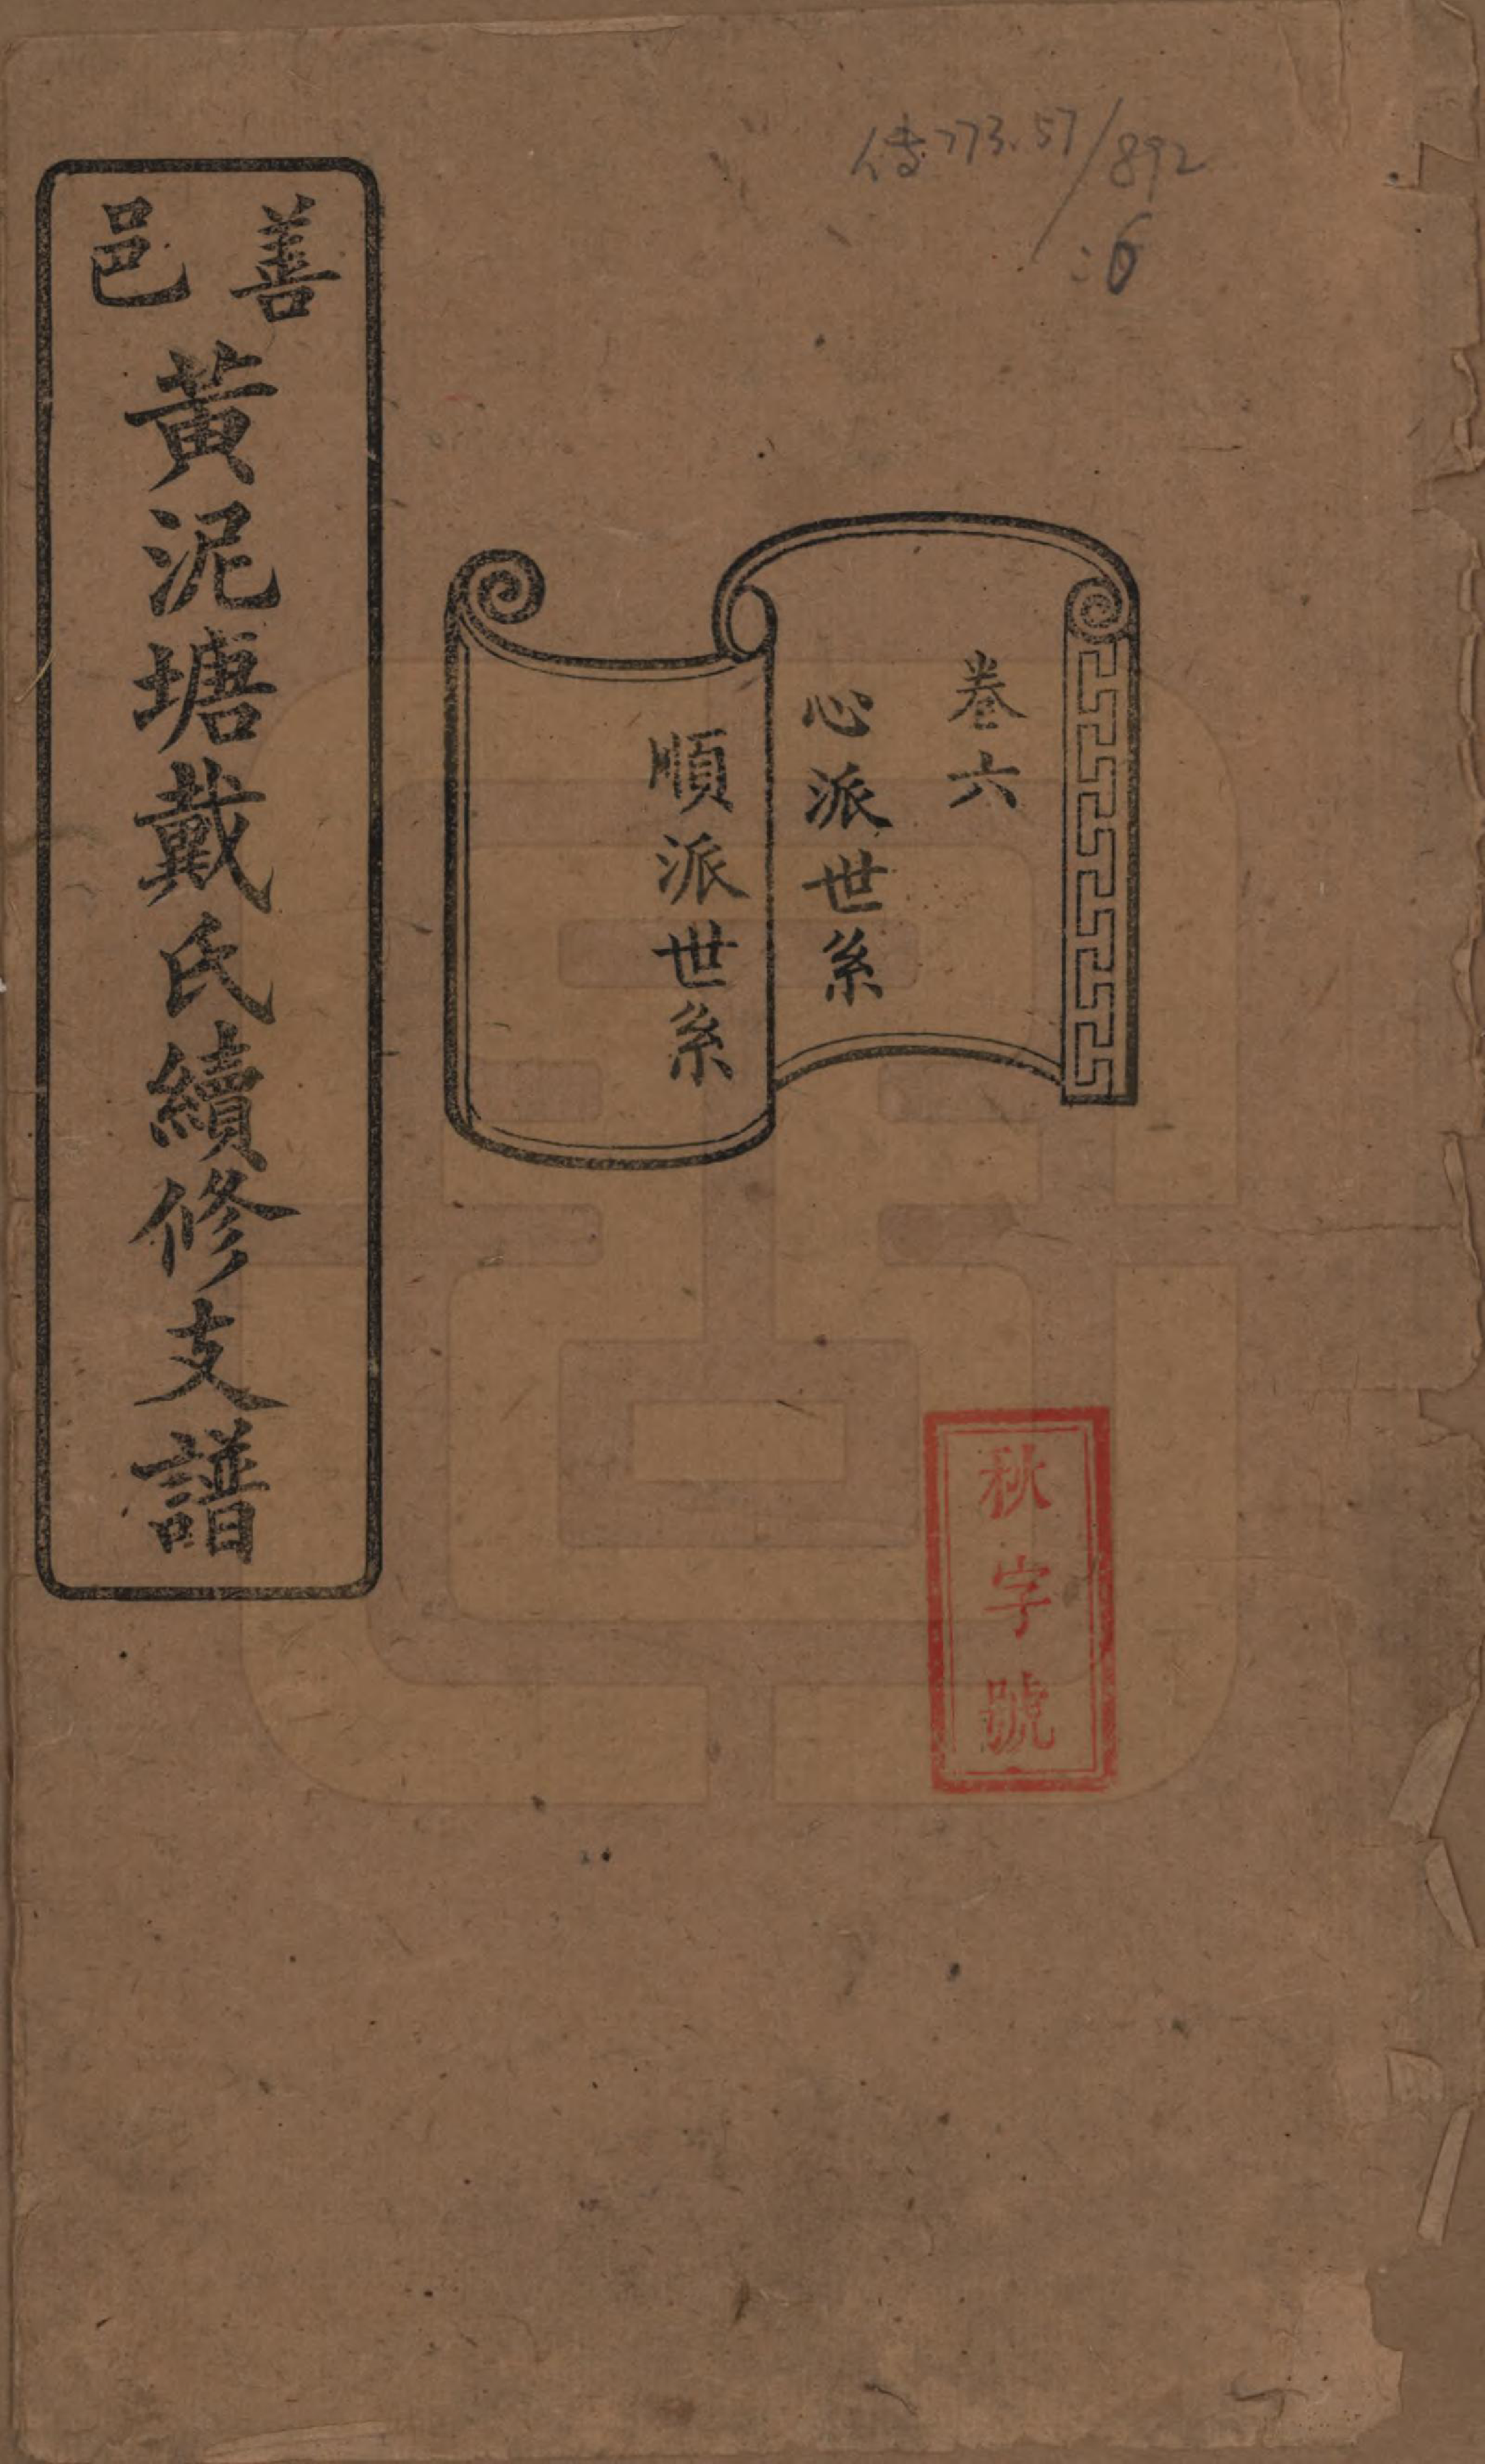 善邑
黃泥塘戴氏續修支譜
卷六
心派世系
順派世系
秋字號
传773.57/892
:6